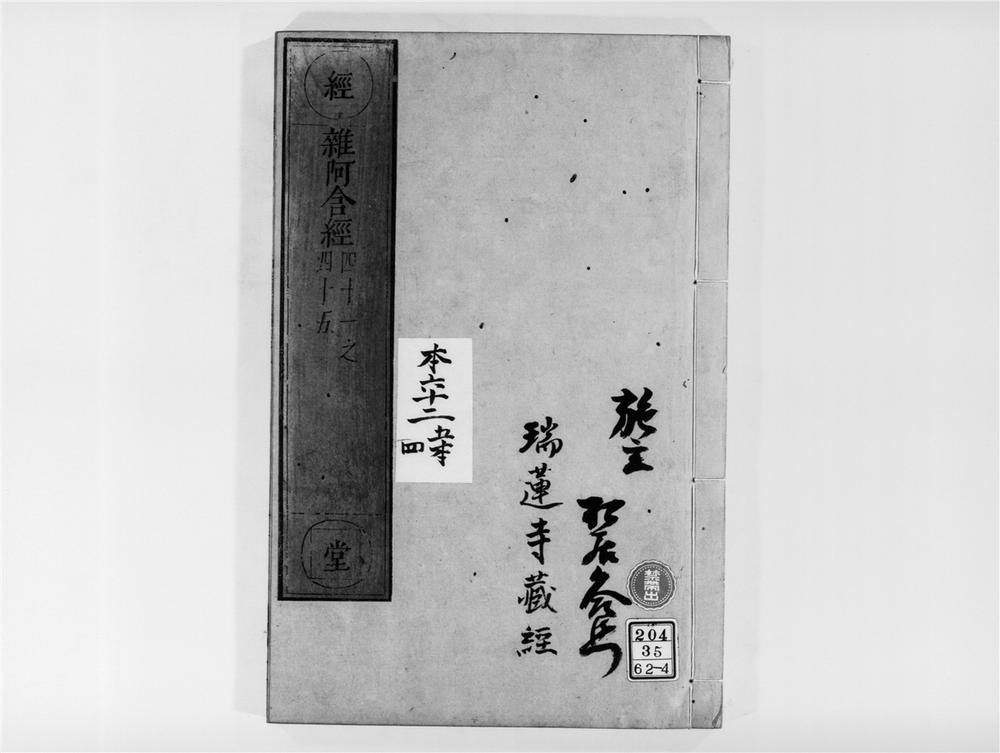 經
雜阿含經
四十一之
四十五
堂
本六十二
四
瑞蓮寺藏經
施主
禁帶出
204
35
62-4